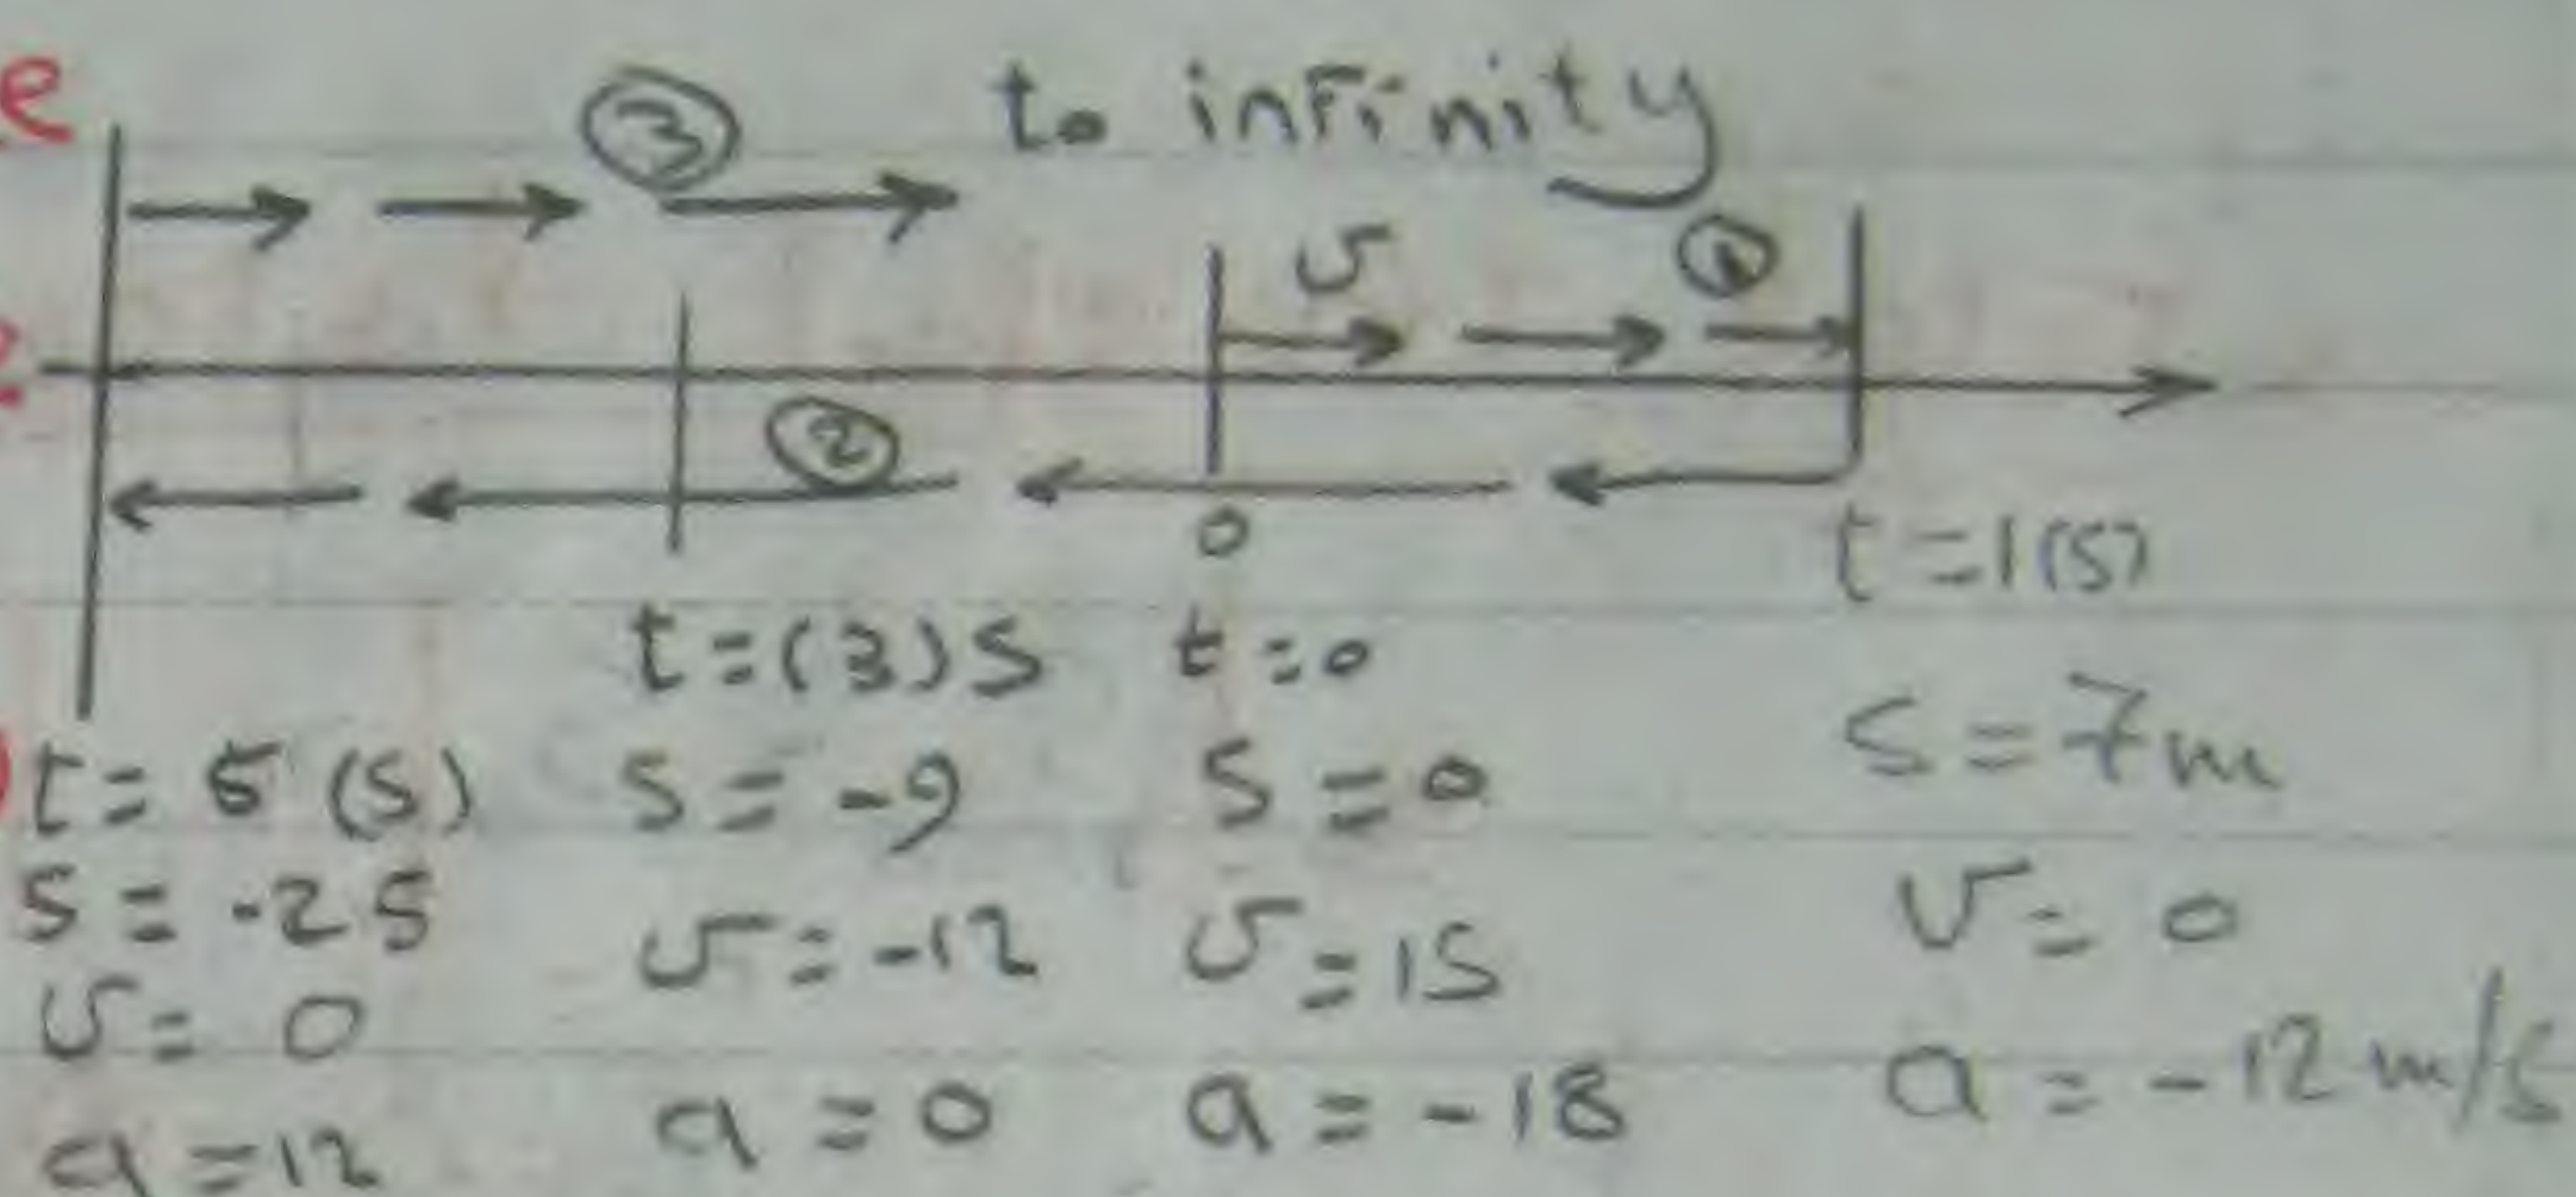 e
③ to infinity
v ①
②
0
t=1(s)
t=(3)s t=0
s=7m
t=5(s) s=-9 s=0
s=-25 v=-12 v=15 v=0
v=0 a=0 a=-18 a=-12m/s
a=12